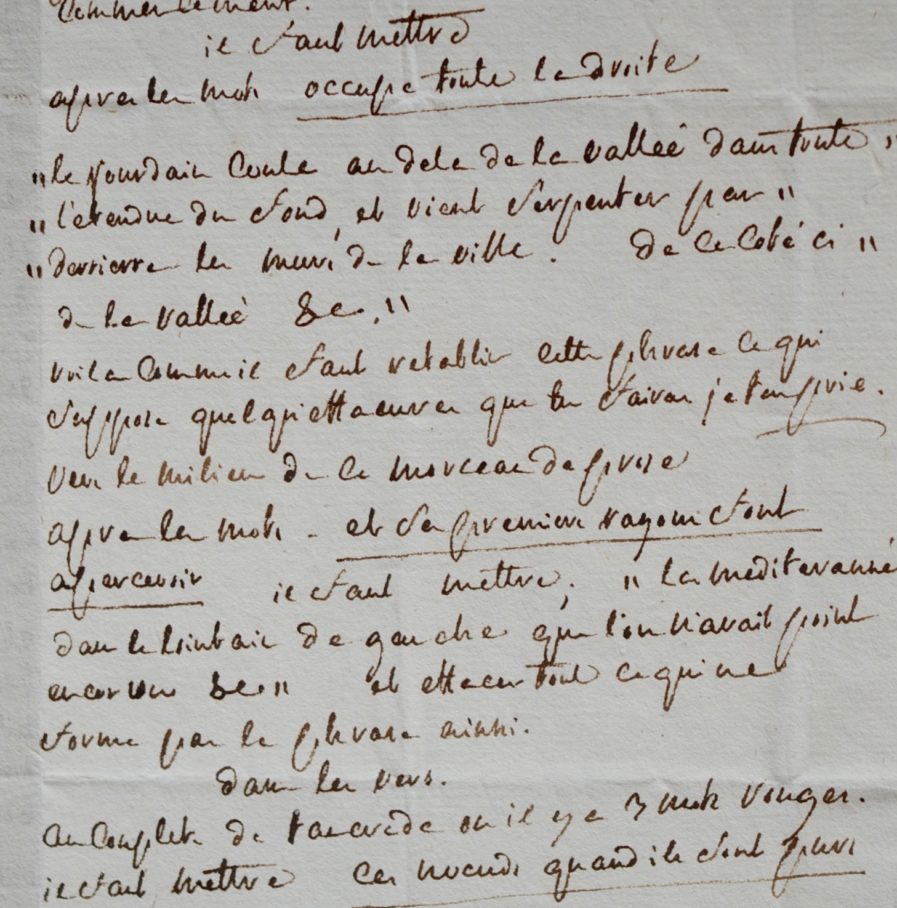 Commencement.
il faut mettre
apres les mots occupe toute la droite
"le Jourdain Coule au dela de la vallée dans toute "
"l'etendue du fond, et vient Serpenter par "
"derriere les murs de la ville. De ce Coté ci "
de la vallée &c. "
voila Comme il faut retablir cette phrase ce qui
Suppose quelqu'effacures que tu fairas je t'en prie.
vers le milieu de ce morceau de prose
apres les mots - et Ses premiers rayons font
apercevoir il faut mettre, " la mediteranné
dans le lointain de gauche que l'on n'avait point
encor vue &c. " et effacer tout ce qui ne
forme pas la phrase ainsi.
dans les vers.
au Couplet de où il y a 3 mots rouges.
il faut mettre Ces nœuds quand ils sont purs